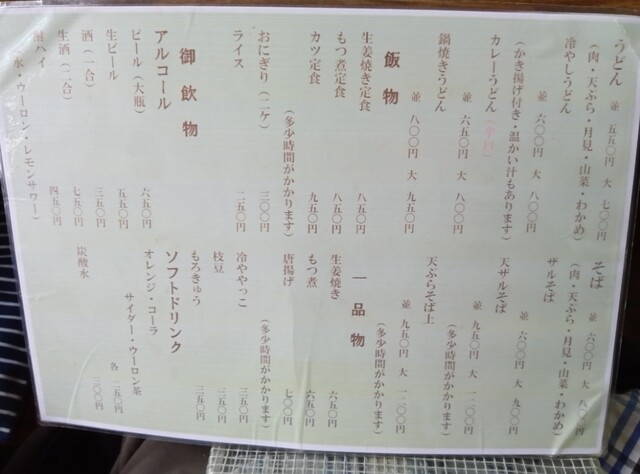 うどん
並 五五〇円 大 七〇〇円
(肉・天ぷら・月見・山菜・わかめ)
冷やしうどん
並 六〇〇円 大 八〇〇円
(かき揚げ付き・温かい汁もあります)
カレーうどん
並 六五〇円 大 八〇〇円
鍋焼きうどん
並 八〇〇円 大 九五〇円
飯物
生姜焼き定食 八五〇円
もつ煮定食 八五〇円
カツ定食 九五〇円
(多少時間がかかります)
おにぎり(二ケ) 三〇〇円
ライス 二五〇円
御飲物
アルコール
ビール(大瓶) 六五〇円
生ビール 五五〇円
酒(一合) 三五〇円
生酒(二合) 七五〇円
酎ハイ 四五〇円
(水・ウーロン・レモンサワー)
そば
並 六〇〇円 大 八〇〇円
(肉・天ぷら・月見・山菜・わかめ)
ザルそば
並 六〇〇円 大 九〇〇円
天ザルそば
並 九五〇円 大 一二〇〇円
(多少時間がかかります)
天ぷらそば上
並 九五〇円 大 一一〇〇円
(多少時間がかかります)
一品物
生姜焼き 六五〇円
もつ煮 六五〇円
唐揚げ 七〇〇円
(多少時間がかかります)
冷ややっこ 三五〇円
枝豆 二五〇円
もろきゅう 三五〇円
ソフトドリンク
オレンジ・コーラ
サイダー・ウーロン茶
各 二五〇円
炭酸水 三〇〇円